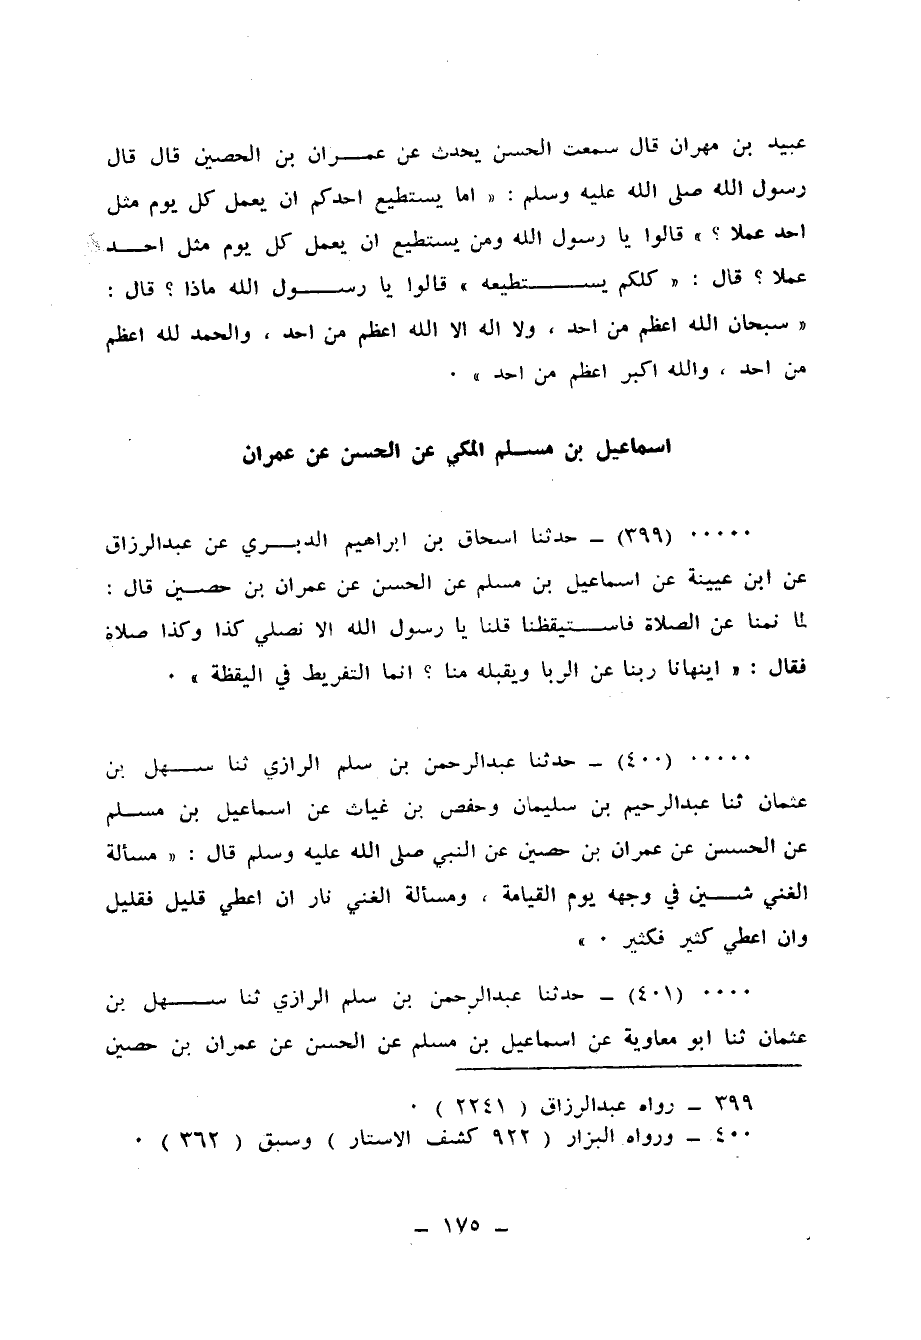 عبيد بن مهران قال سمعت الحسن يحدث عن عمران بن الحصين قال قال
رسول الله صلى الله عليه وسلم : « اما يستطيع احدكم ان يعمل كل يوم مثل
احد عملا ؟ » قالوا يا رسول الله ومن يستطيع ان يعمل كل يوم مثل احد
عملا ؟ قال : « كلكم يستطيعه » قالوا يا رسول الله ماذا ؟ قال :
« سبحان الله اعظم من احد ، ولا اله الا الله اعظم من احد ، والحمد لله اعظم
من احد ، والله اكبر اعظم من احد » ٠
اسماعيل بن مسلم المكي عن الحسن عن عمران
٠٠٠٠٠ (٣٩٩) ـ حدثنا اسحاق بن ابراهيم الدبري عن عبدالرزاق
عن ابن عيينة عن اسماعيل بن مسلم عن الحسن عن عمران بن حصين قال :
لما نمنا عن الصلاة فاستيقظنا قلنا يا رسول الله الا نصلي كذا وكذا صلاة
فقال : « اينهانا ربنا عن الربا ويقبله منا ؟ انما التفريط في اليقظة » ٠
٠٠٠٠٠ (٤٠٠) ـ حدثنا عبدالرحمن بن سلم الرازي ثنا سهل بن
عثمان ثنا عبدالرحيم بن سليمان وحفص بن غياث عن اسماعيل بن مسلم
عن الحسن عن عمران بن حصين عن النبي صلى الله عليه وسلم قال : « مسألة
الغني شين في وجهه يوم القيامة ، ومسألة الغني نار ان اعطي قليل فقليل
وان اعطي كثير فكثير ٠ »
٠٠٠٠ (٤٠١) ـ حدثنا عبدالرحمن بن سلم الرازي ثنا سهل بن
عثمان ثنا ابو معاوية عن اسماعيل بن مسلم عن الحسن عن عمران بن حصين
٣٩٩ ـ رواه عبدالرزاق ( ٢٢٤١ ) ٠
٤٠٠ ـ ورواه البزار ( ٩٢٢ كشف الاستار ) وسبق ( ٣٦٢ ) ٠
ـ ١٧٥ ـ